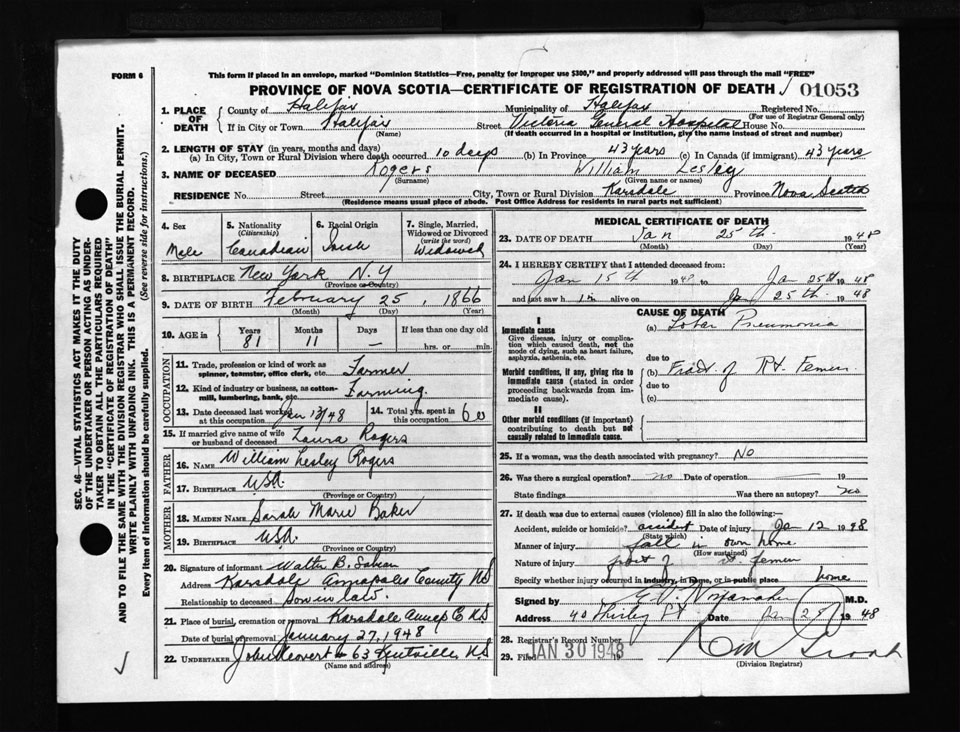 FORM 6
This form if placed in an envelope, marked "Dominion Statistics—Free, penalty for improper use $300," and properly addressed will pass through the mail "FREE"
PROVINCE OF NOVA SCOTIA—CERTIFICATE OF REGISTRATION OF DEATH 01053
1. PLACE OF DEATH County of Halifax Municipality of Halifax Registered No.
(For use of Registrar General only)
If in City or Town Halifax Street Victoria General Hospital House No.
(Name) (If death occurred in a hospital or institution, give the name instead of street and number)
2. LENGTH OF STAY (in years, months and days)
(a) In City, Town or Rural Division where death occurred 10 days (b) In Province 43 years (c) In Canada (if immigrant) 43 years
3. NAME OF DECEASED Rogers William Lesley
(Surname) (Given name or names)
RESIDENCE No. Street City, Town or Rural Division Karsdale Province Nova Scotia
(Residence means usual place of abode. Post Office Address for residents in rural parts not sufficient)
4. Sex Male
5. Nationality (Citizenship) Canadian
6. Racial Origin Irish
7. Single, Married, Widowed or Divorced (write the word) Widowed
8. BIRTHPLACE New York N.Y
(Province or Country)
9. DATE OF BIRTH February 25, 1866
(Month) (Day) (Year)
10. AGE in Years 81 Months 11 Days — If less than one day old hrs. or min.
OCCUPATION
11. Trade, profession or kind of work as spinner, teamster, office clerk, etc. Farmer
12. Kind of industry or business, as cotton-mill, lumbering, bank, etc. Farming
13. Date deceased last worked at this occupation Jan 12/48
14. Total yrs. spent in this occupation 60
15. If married give name of wife or husband of deceased Laura Rogers
FATHER
16. NAME William Lesley Rogers
17. BIRTHPLACE USA.
(Province or Country)
MOTHER
18. MAIDEN NAME Sarah Marie Baker
19. BIRTHPLACE USA.
(Province or Country)
20. Signature of informant Walter B.
Address Karsdale Annapolis County NS
Relationship to deceased Son in law.
21. Place of burial, cremation or removal Karsdale NS
Date of burial or removal January 27, 1948
22. UNDERTAKER John 63 Kentville, N.S
(Name and address)
MEDICAL CERTIFICATE OF DEATH
23. DATE OF DEATH Jan 25th 1948
(Month) (Day) (Year)
24. I HEREBY CERTIFY that I attended deceased from:
Jan 15th 1948 to Jan 25th 1948
and last saw him alive on Jan 25th 1948
CAUSE OF DEATH
I
Immediate cause
Give disease, injury or complication which caused death, not the mode of dying, such as heart failure, asphyxia, asthenia, etc.
(a) Lobar Pneumonia
due to
Morbid conditions, if any, giving rise to immediate cause (stated in order proceeding backwards from immediate cause).
(b) Fract. of Rt. Femur
due to
(c)
II
Other morbid conditions (if important) contributing to death but not causally related to immediate cause.
25. If a woman, was the death associated with pregnancy? No
26. Was there a surgical operation? no Date of operation — 19
State findings Was there an autopsy? no
27. If death was due to external causes (violence) fill in also the following:—
Accident, suicide or homicide? accident Date of injury Jan 12 1948
(State which)
Manner of injury fall in own home
(How sustained)
Nature of injury fract of rt. femur
Specify whether injury occurred in industry, in home, or in public place home
Signed by M.D.
Address 40 Date Jan 25 1948
28. Registrar's Record Number
29. Filed JAN 30 1948
(Division Registrar)
SEC. 46—VITAL STATISTICS ACT MAKES IT THE DUTY
OF THE UNDERTAKER OR PERSON ACTING AS UNDER-
TAKER TO OBTAIN ALL THE PARTICULARS REQUIRED
IN THE "CERTIFICATE OF REGISTRATION OF DEATH"
AND TO FILE THE SAME WITH THE DIVISION REGISTRAR WHO SHALL ISSUE THE BURIAL PERMIT.
WRITE PLAINLY WITH UNFADING INK. THIS IS A PERMANENT RECORD.
Every item of Information should be carefully supplied. (See reverse side for instructions.)